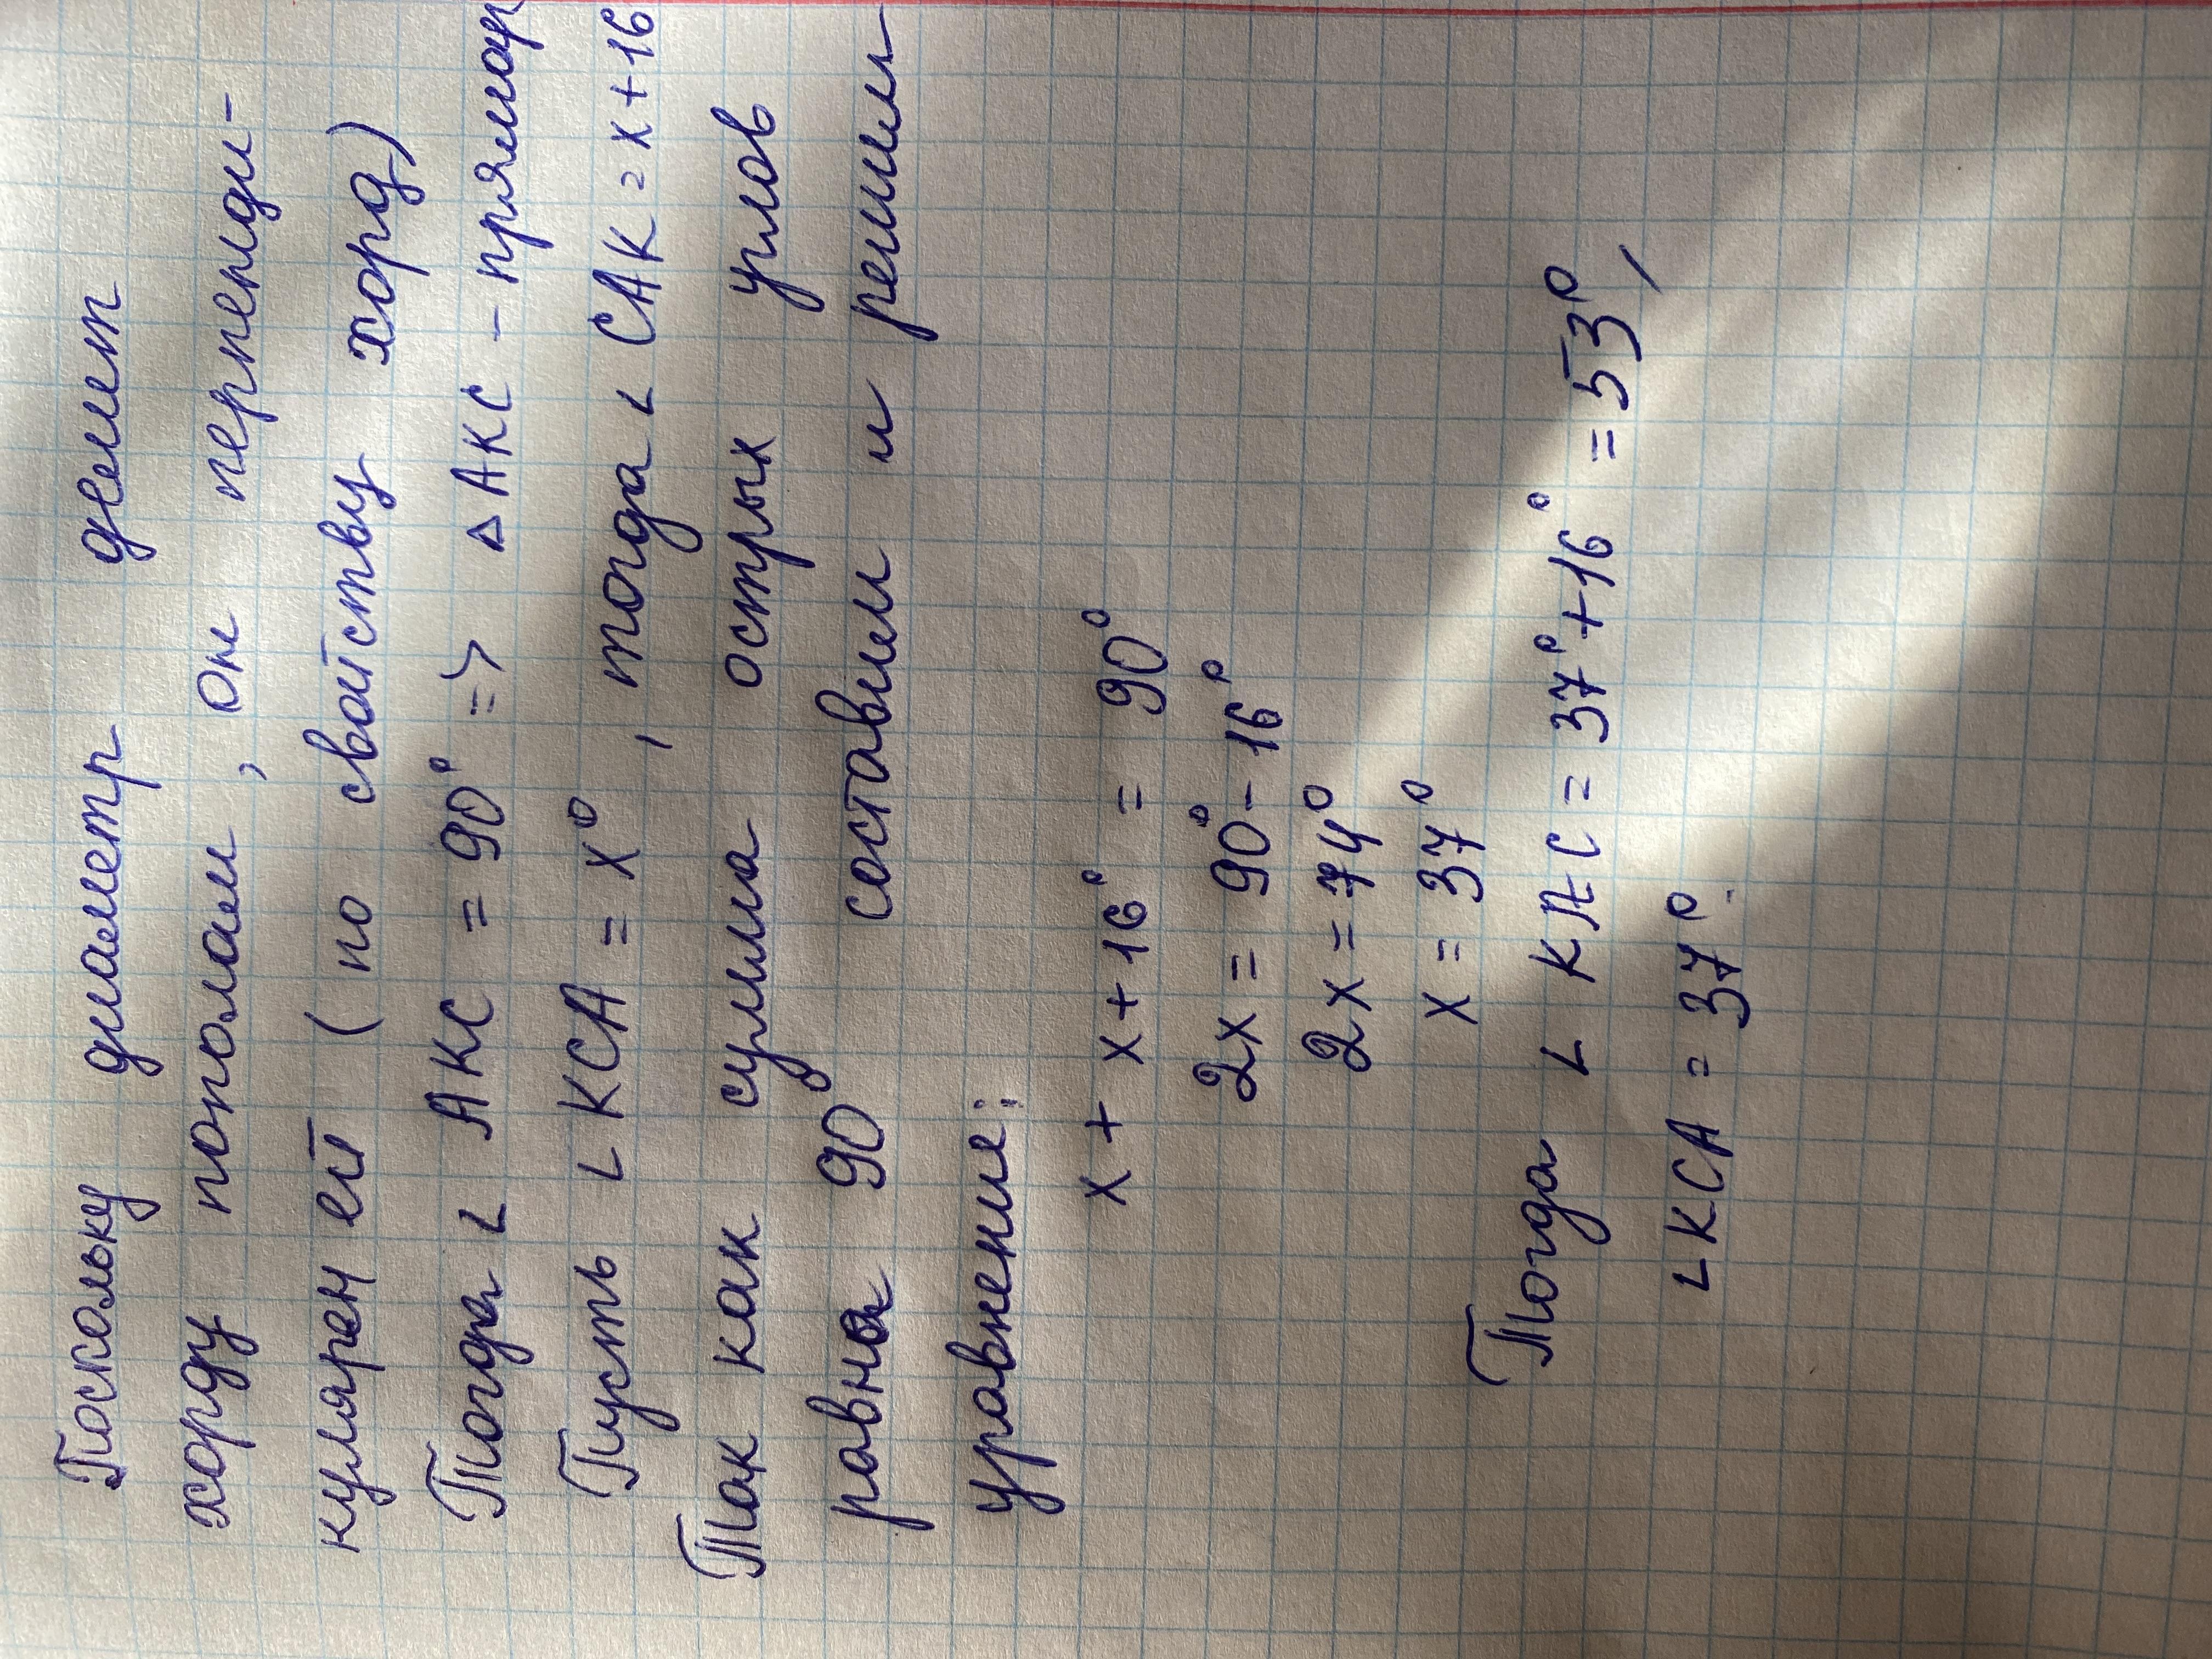 Поскольку диаметр делит
хорду пополам, он перпенди-
кулярен ей (по свойству хорд)
Тогда ∟ АКС = 90° => △ АКС - прямоуг
Пусть ∟ КСА = х°, тогда ∟ САК = х+16
Так как сумма острых углов
равна 90° составим и решим
уравнение:
х + х+16° = 90°
2х = 90°-16°
2х = 74°
х = 37°
Тогда ∟ КАС = 37°+16° = 53°,
∟КСА = 37°.